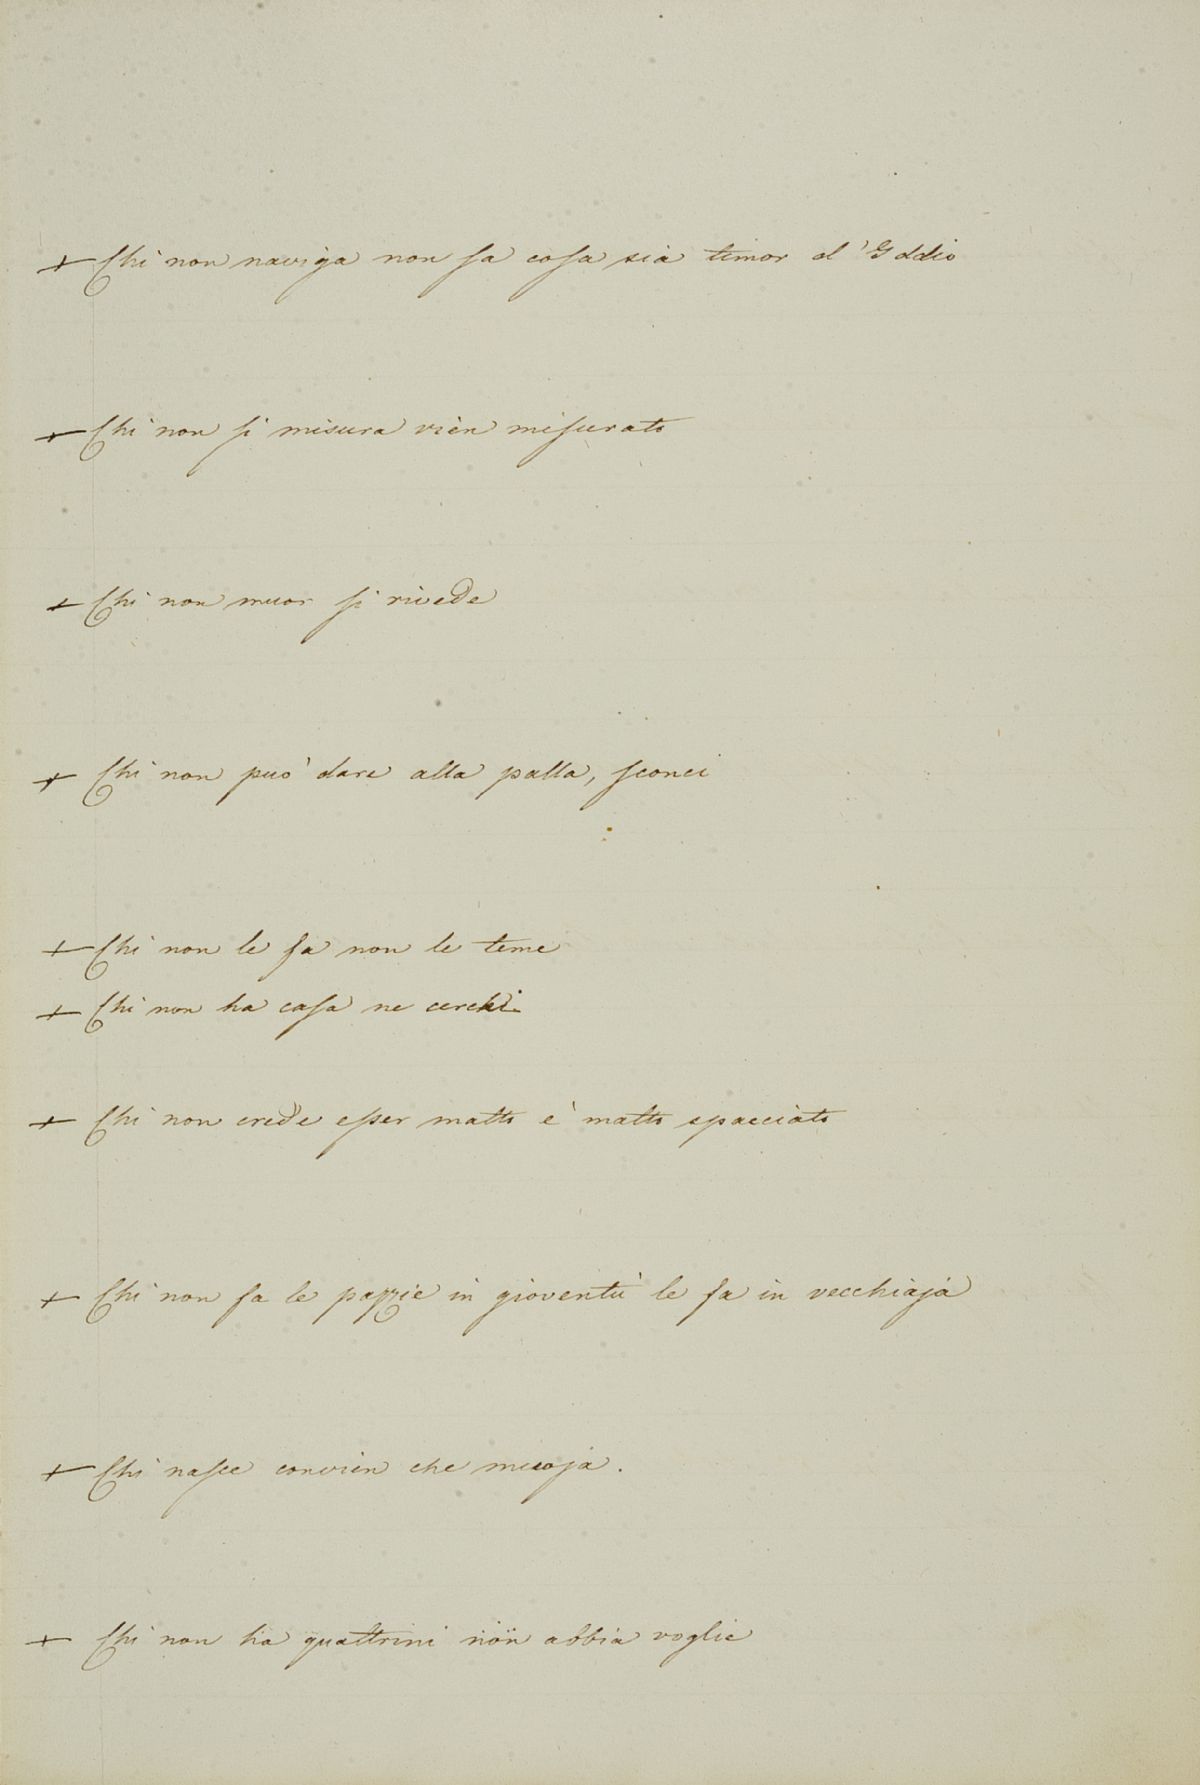 + Chi non naviga non sa cosa sia timor d'Iddio
+ Chi non si misura vien misurato
+ Chi non muor si rivede
+ Chi non può dare alla palla, sconci
+ Chi non le fa non le teme
+ Chi non ha casa ne cerchi
+ Chi non crede esser matto è matto spacciato
+ Chi non fa le pazzie in gioventù le fa in vecchiaja
+ Chi nasce convien che muoja.
+ Chi non ha quattrini non abbia voglie